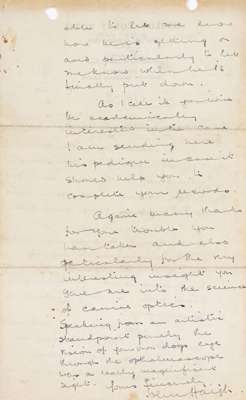 able to let me know
how he is getting on
and particularly to let
me know when he is
finally put down.
As I can be
be academically
interested in the case
I am sending here
his pedigree in case it
should help you to
complete your records.
Again many thanks
for your trouble you
have taken and also
particularly for the very
interesting insight you
gave me into the science
of canine optics.
Speaking from an artistic
standpoint purely the
vision of your own dogs eye
through the ophthalmoscope
was a really magnificent
sight. Yours sincerely
John Haigh.